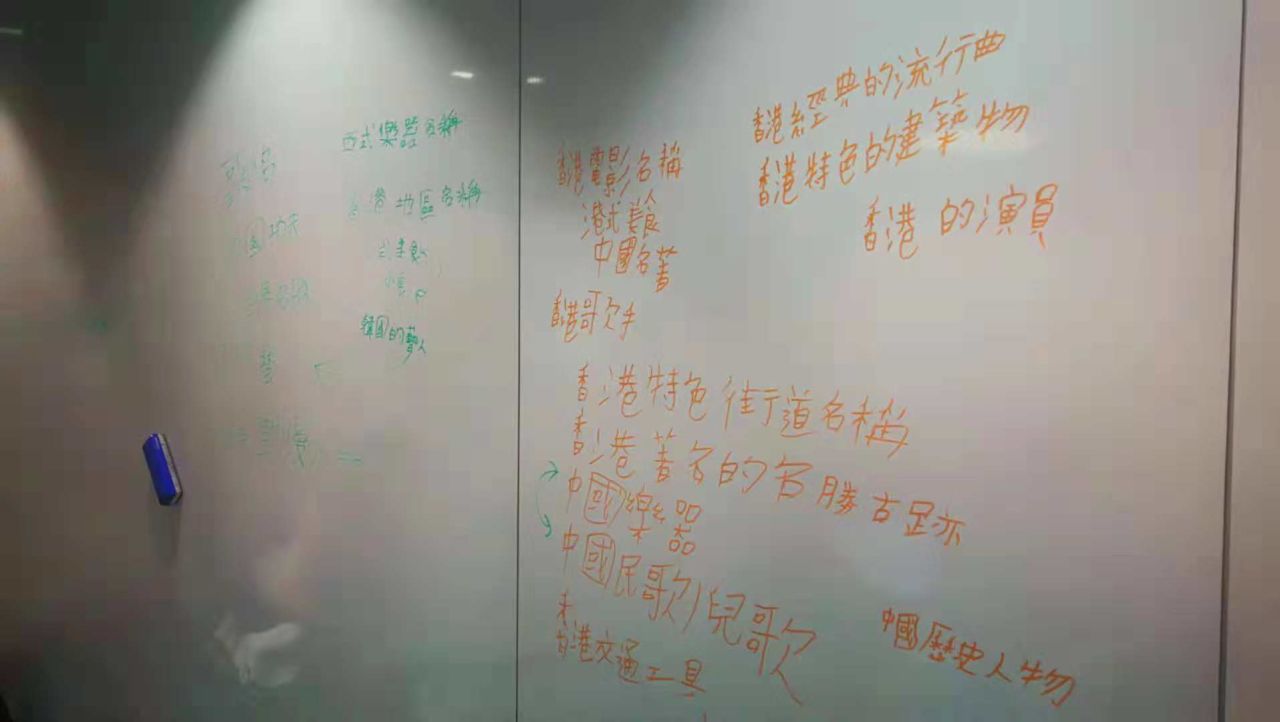 西式樂器名稱
港地區名稱
韓國的藝人
功夫
香港電影名稱
港式美食
中國名著
香港歌手
香港經典的流行曲
香港特色的建築物
香港的演員
香港特色街道名稱
香港著名的名勝古跡
中國樂器
中國民歌/兒歌
香港交通工具
中國歷史人物